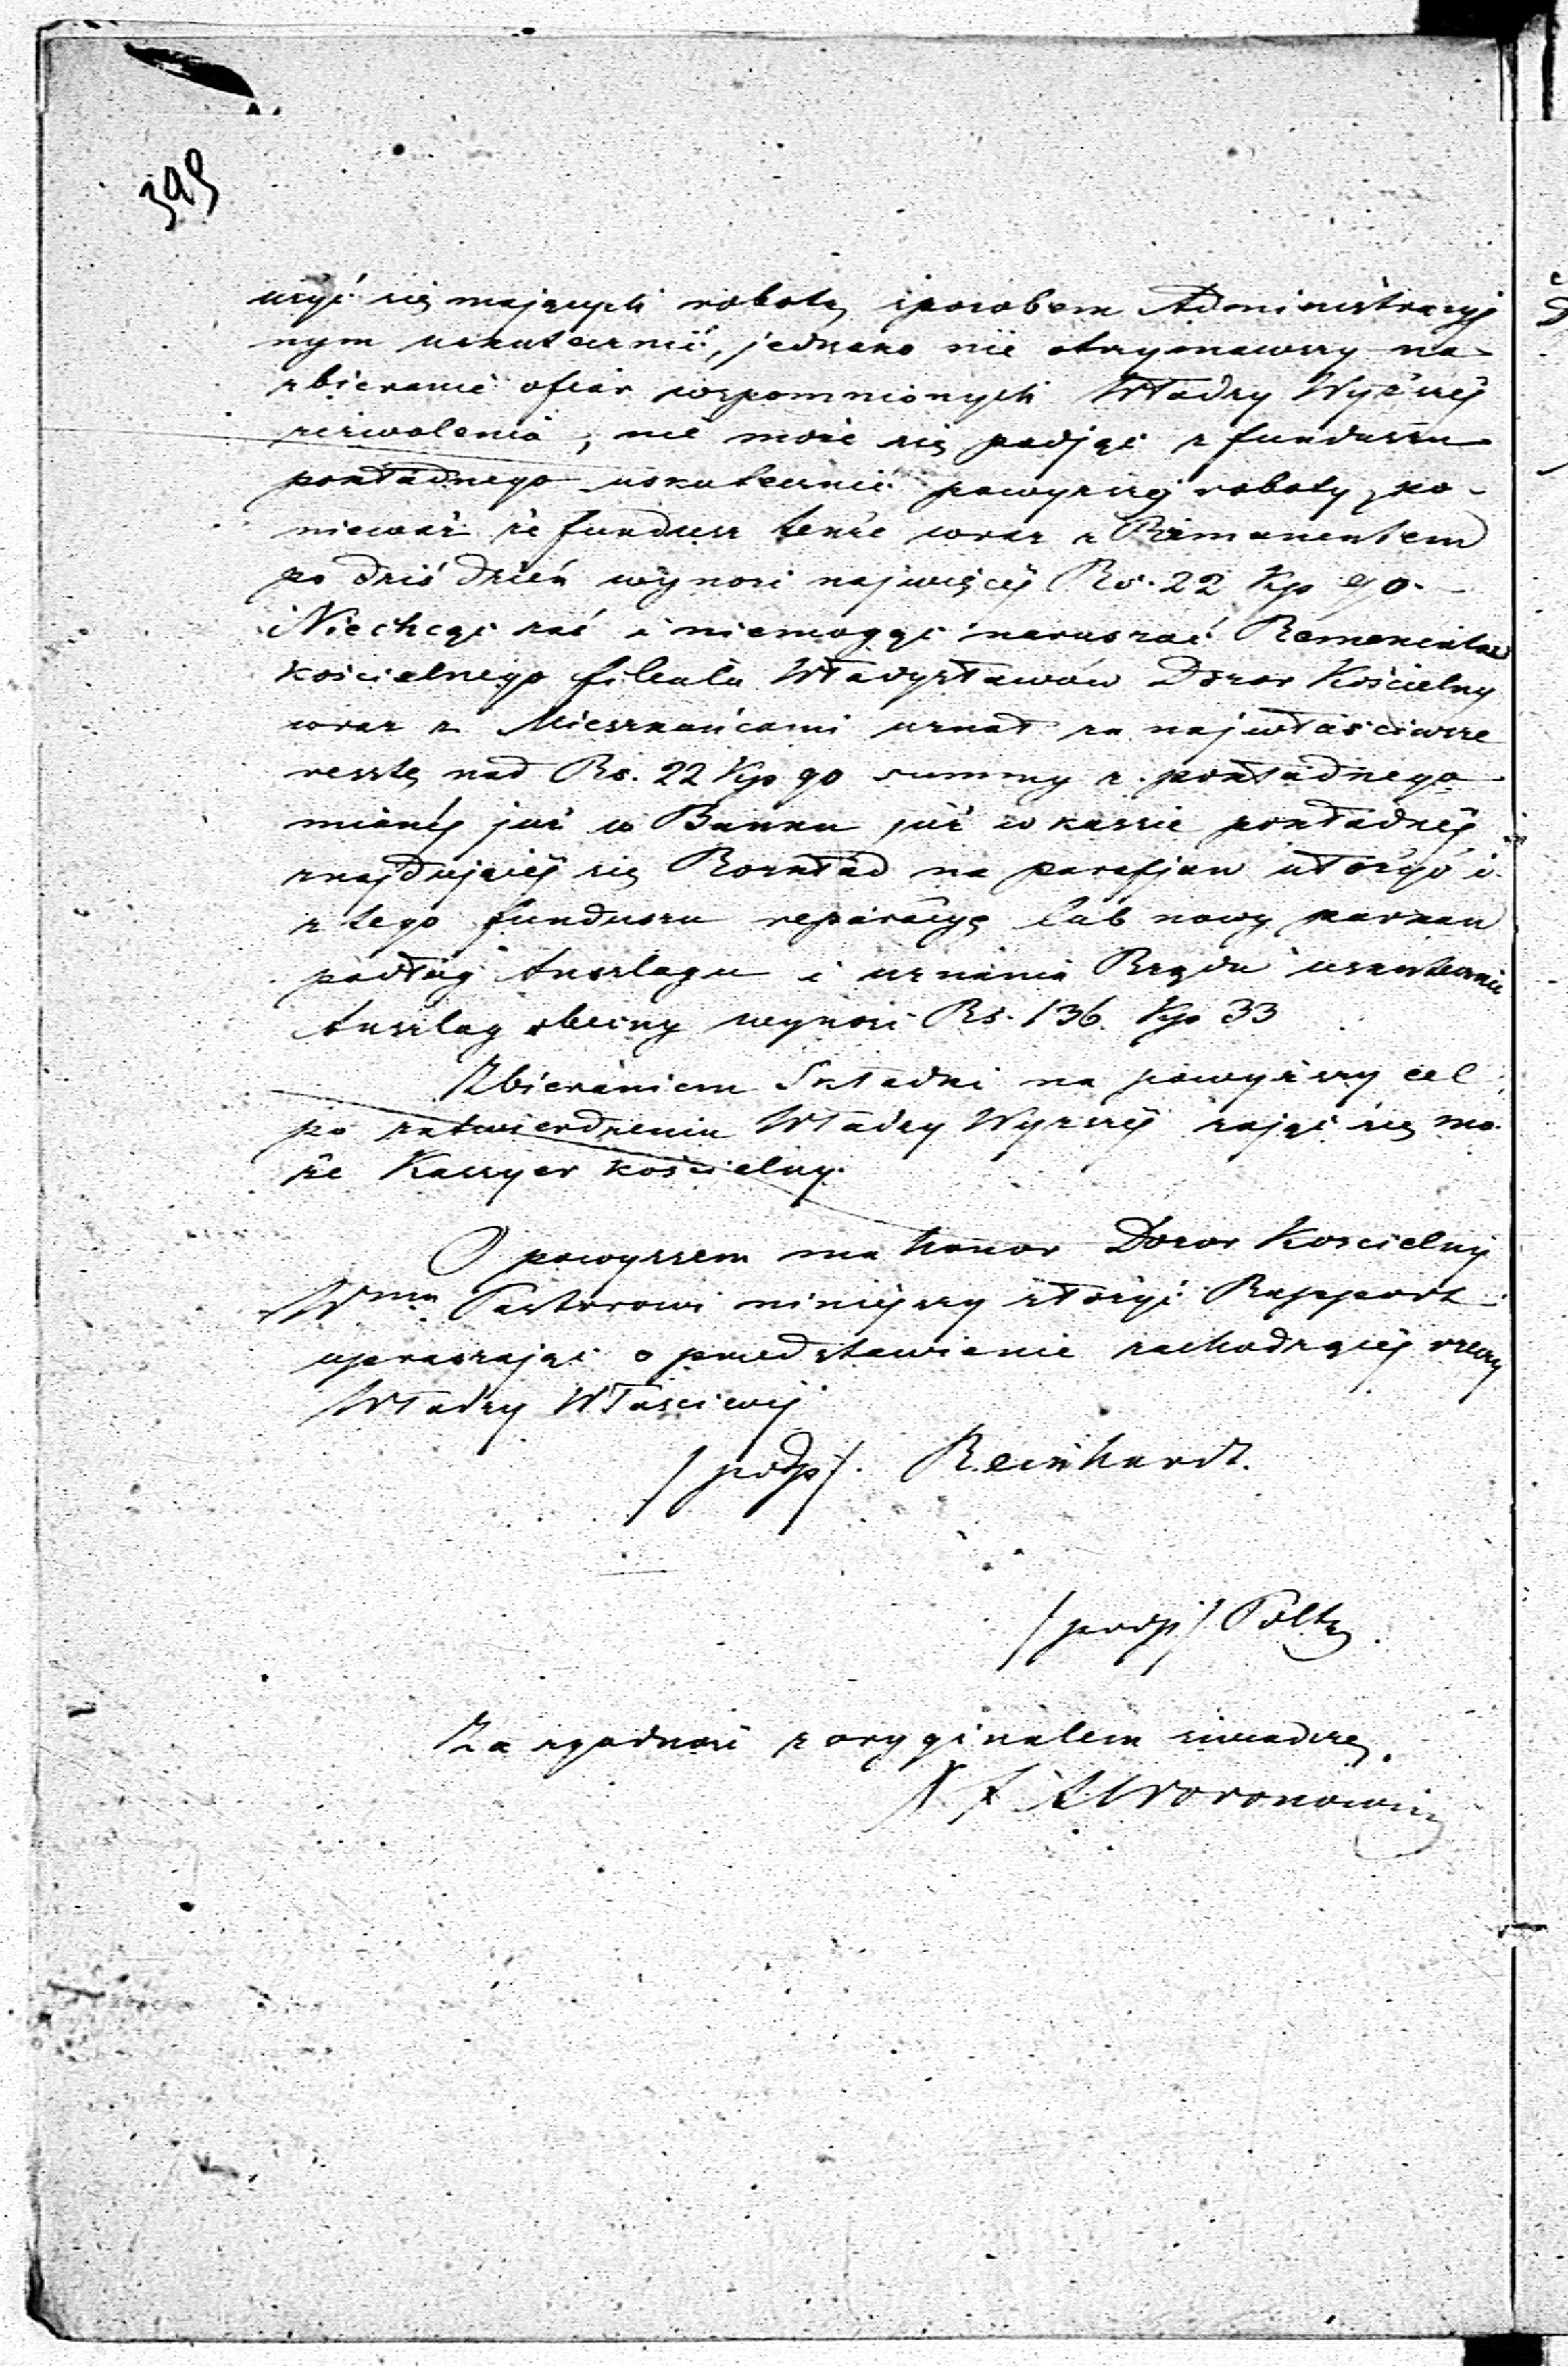 399
użyć się mających robotę sposobem Administracyj
nym uskutecznić, jednako nie otrzymawszy na
zbieranie ofiar wspomnionych Władzy Wyższéj
zezwolenia, nie może się podjąć z funduszu
pokładnego uskutecznić powyższéj roboty, po-
nieważ że fundusz tenże wraz z Remanentem
po dziś dzień wynosi najwięcéj Rs. 22 Kp 90.
Niechcąc zaś i niemogąc naruszać Remanentu
kościelnego filiału Władysławów Dozór Kościelny
wraz z Mieszkańcami uznał za najwłaściwsze
resztę nad Rs. 22 Kp 90 summy z pokładnego
mianéj już w Banku już w kassie pokładnéj
znajdującéj się Rozkład na parafjan ułożyć i
z tego funduszu reparacyą lub nowy parkan
podług Anszlagu i uznania Rządu uskutecznić
Anszlag obecny wynosi Rs. 136. Kp 33
Zbieraniem Składki na powyższy cel
po zatwierdzeniu Władzy Wyższéj zająć się mo-
że Kassyer kościelny.
O powyższem ma honor Dozór Kościelny
Wmu Pastorowi niniejszy złożyć Rapport
upraszając o przedstawienie zachodzącéj rzeczy
Władzy Właściwéj
/podp/. Reinhardt.
/podp/ Poltz
Za zgodność z oryginałem świadczę.
Woronowicz